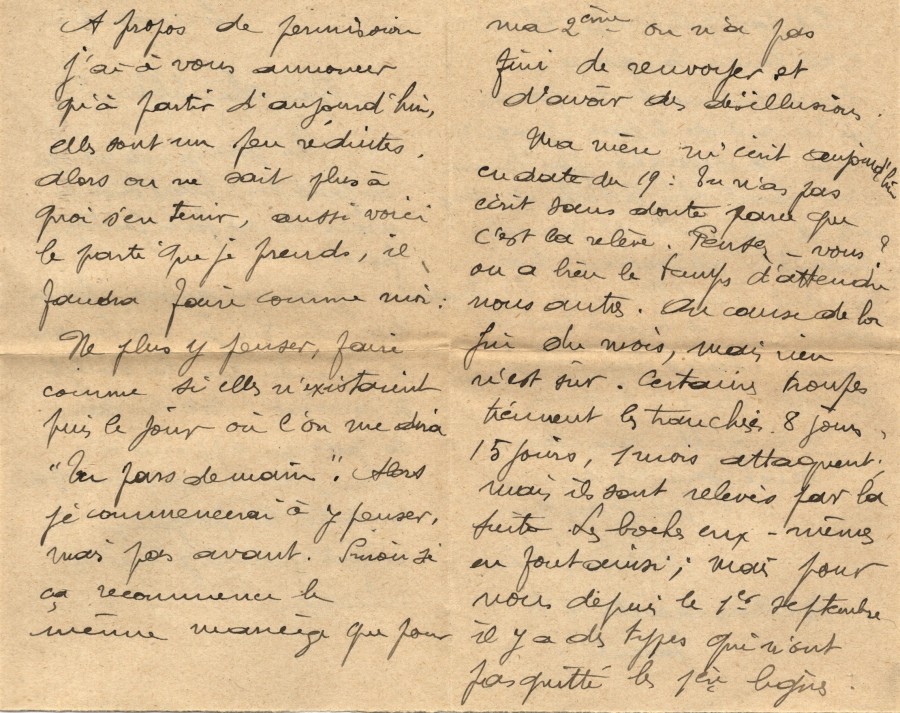 A propos de permission
j'ai à vous annoncer
qu'à partir d'aujourd'hui,
elles sont un peu réduites.
alors on ne sait plus à
quoi s'en tenir, aussi voici
le parti que je prends, il
faudra faire comme moi :
Ne plus y penser, faire
comme si elles n'existaient
puis le jour où l'on me dira
"tu pars demain". Alors
je commencerai à y penser,
mais pas avant. Sinon si
ça recommence le
même manège que pour
ma 2ème on n'a pas
fini de renvoyer et
d'avoir des désillusions.
Ma mère m'écrit aujourd'hui
en date du 19 : Tu n'as pas
écrit sans doute parce que
c'est la relève. Pensez-vous ?
on a bien le temps d'attendre
nous autres. On cause de la
fin du mois, mais rien
n'est sûr. Certaines troupes
tiennent les tranchées 8 jours,
15 jours, 1 mois attaquent,
mais ils sont relevés par la
suite. Les boches eux-mêmes
en font ainsi ; mais pour
nous depuis le 1er septembre
il y a des types qui n'ont
pas quitté les 1ère lignes.